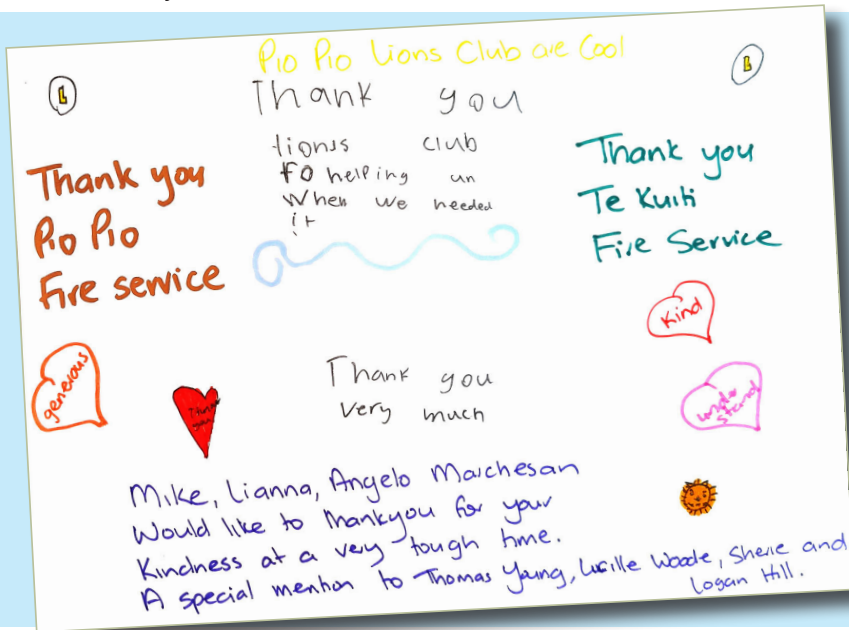 Pio Pio Lions Club are Cool
L
L
Thank you
lionss club
fo helping un
When we needed
it
Thank you
Pio Pio
Fire service
Thank you
Te Kuiti
Fire Service
Kind
generous
Thank
you
Thank you
very much
under
stand
Mike, Lianna, Angelo Marchesan
Would like to thankyou for your
Kindness at a very tough time.
A special mention to Thomas Young, Lucille Woode, Sherie and
Logan Hill.